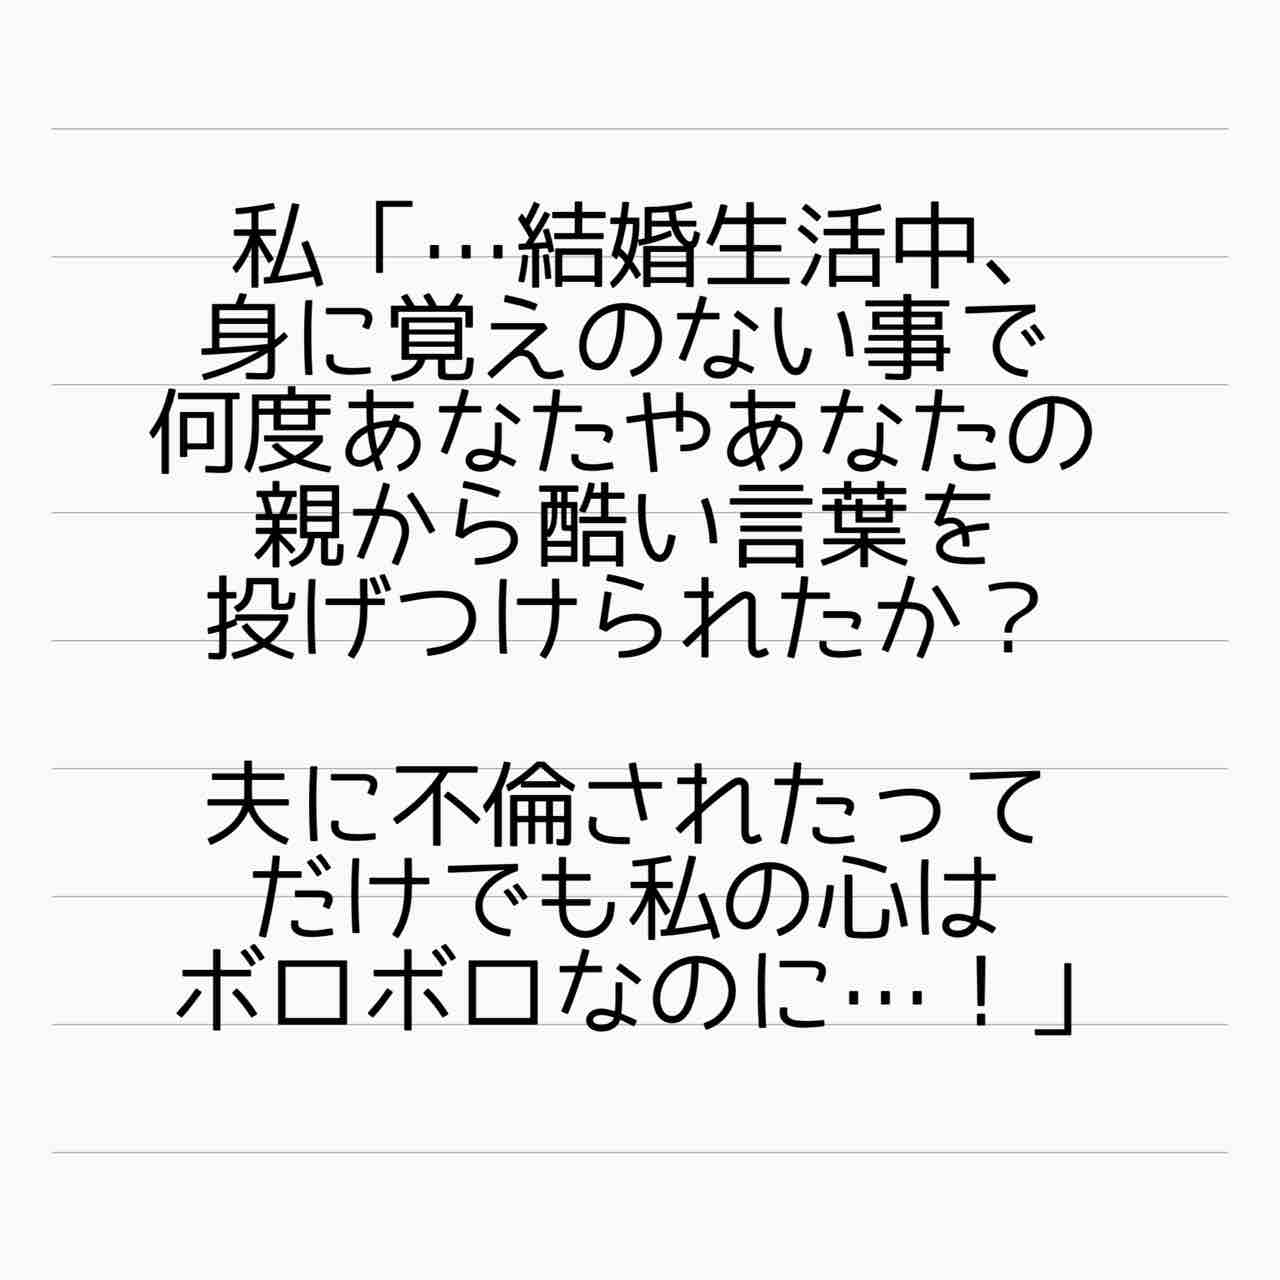 私「…結婚生活中、
身に覚えのない事で
何度あなたやあなたの
親から酷い言葉を
投げつけられたか？
夫に不倫されたって
だけでも私の心は
ボロボロなのに…！」